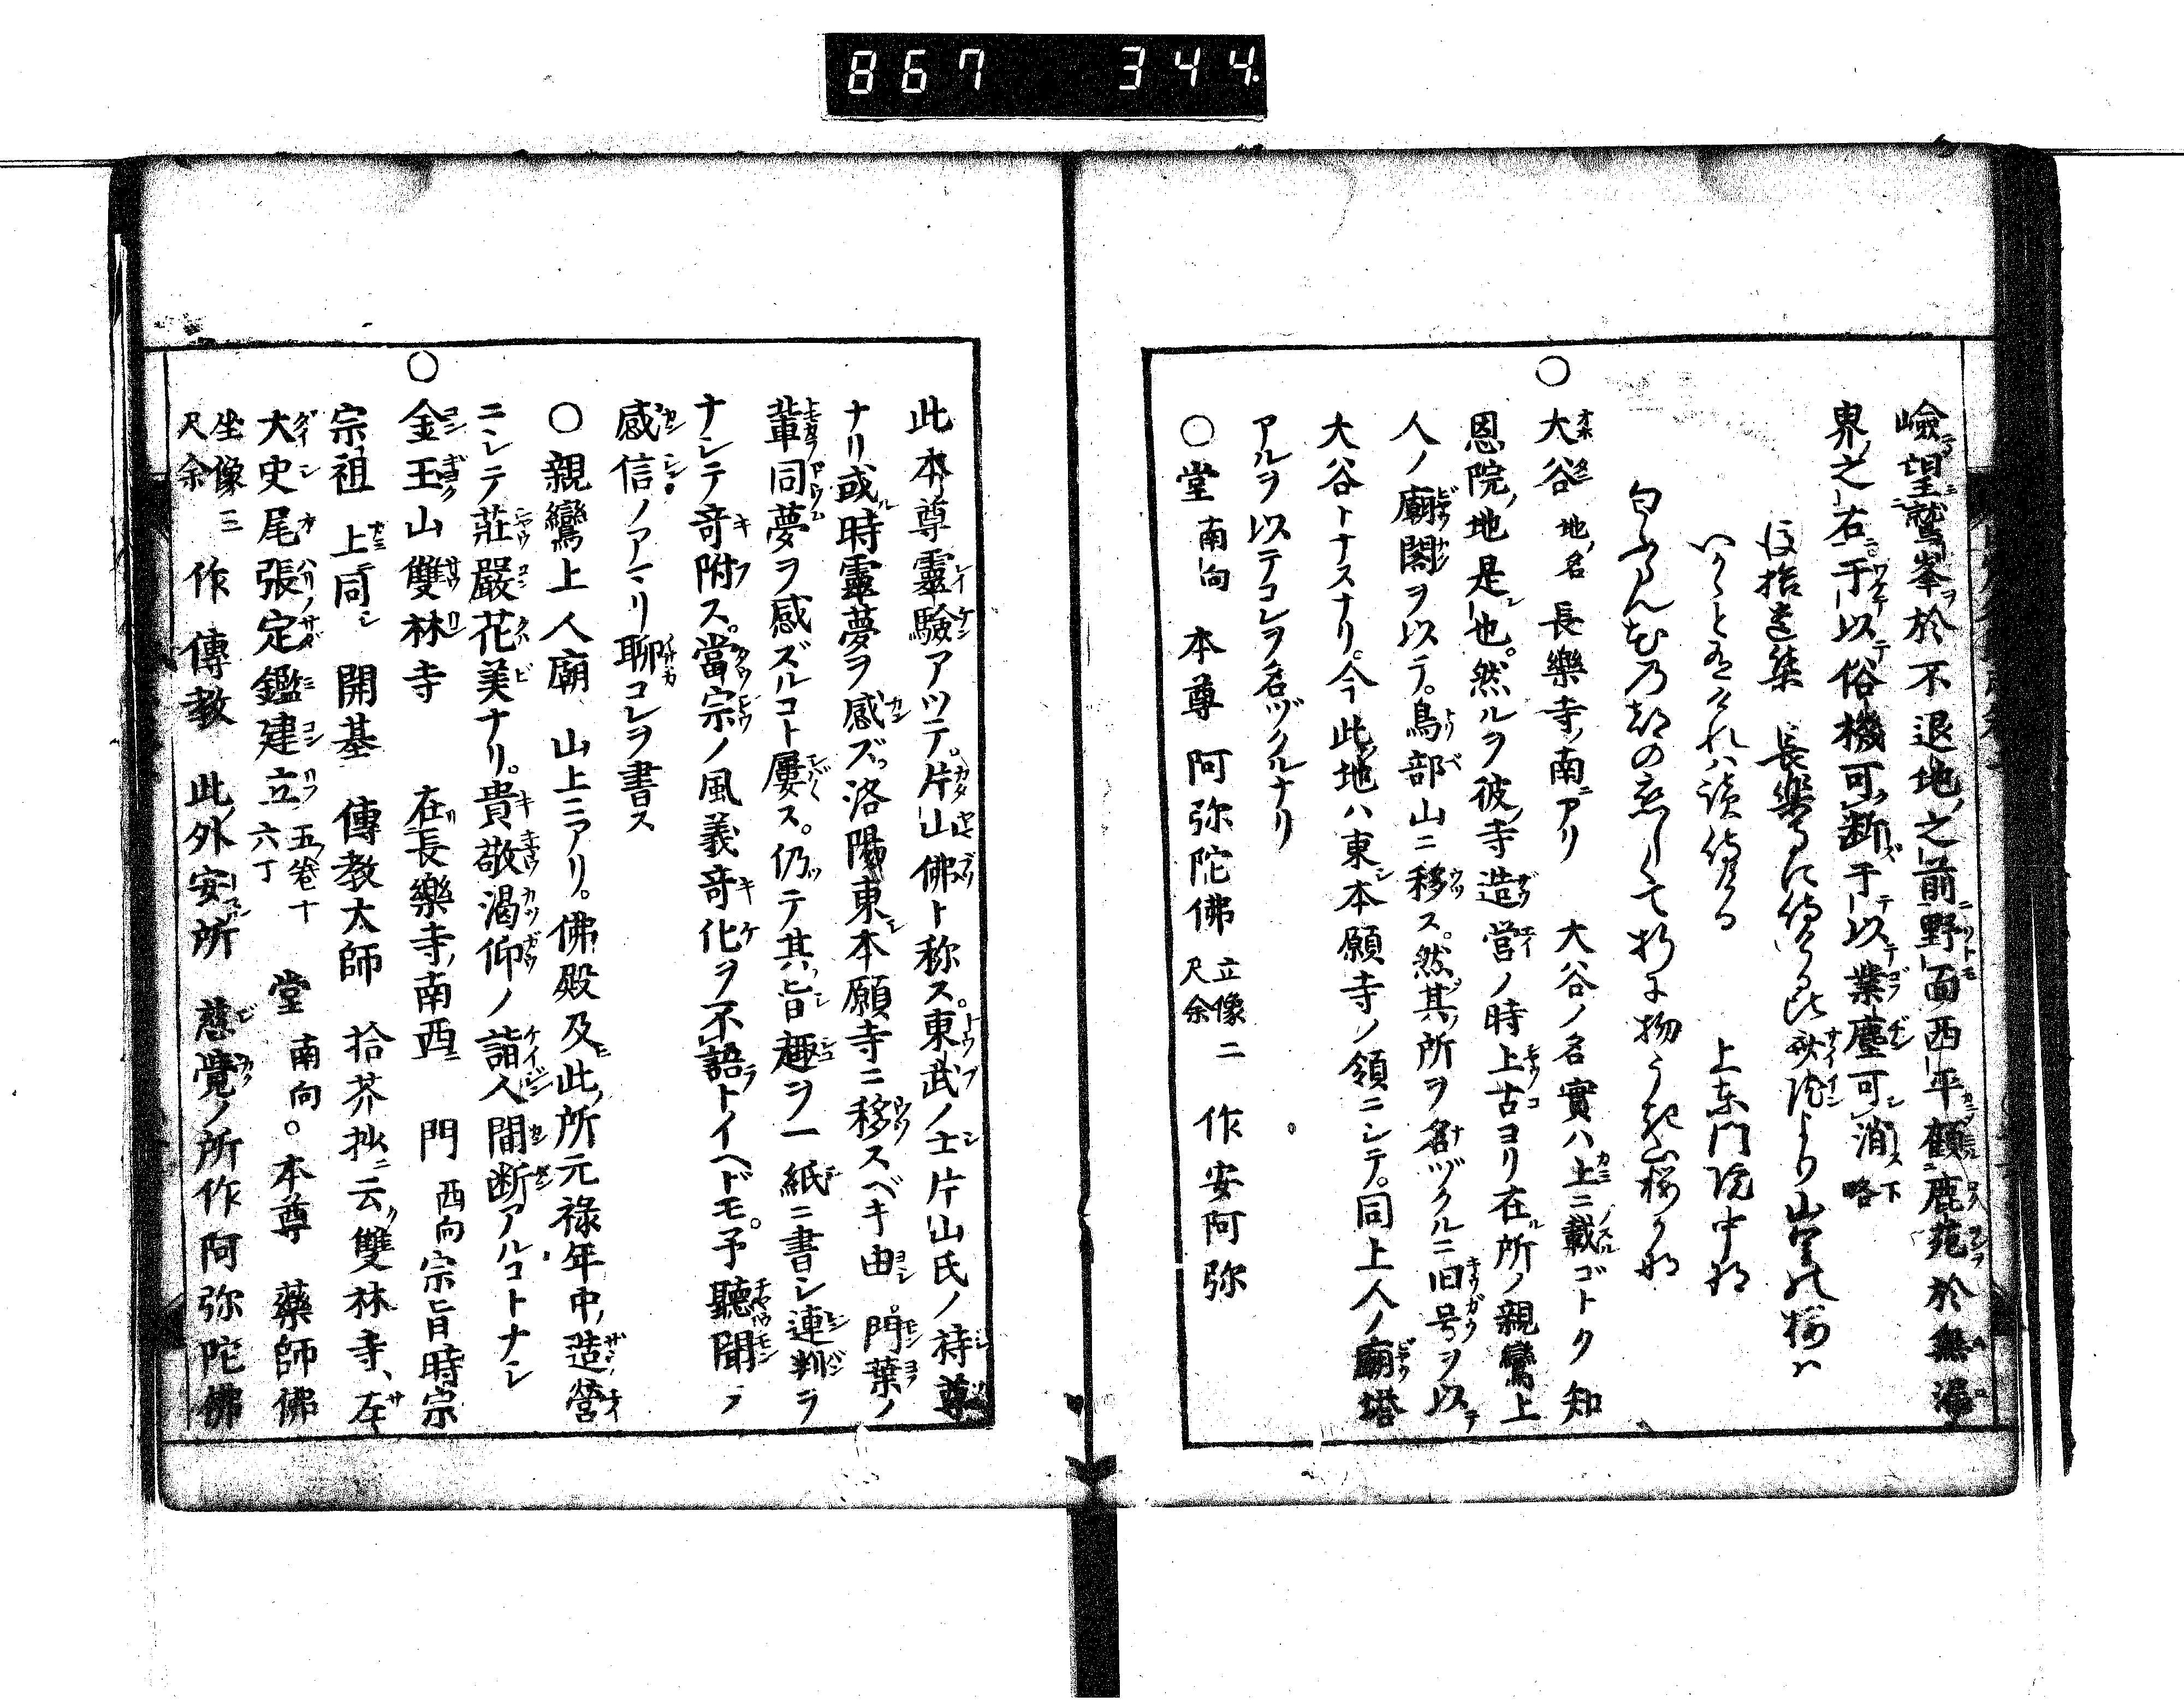 867 344
嶮望鷲峯於不退地之前野面西平顧鹿苑於無漏
界之右于以俗機可断于以業塵可消下略
後拾遺集 長樂寺に侍ける比斎院より山里の桜ハ
いかゝと有けれハ讀侍ける 上東門院中将
にほふらんむ乃都の恋しくて折に物うき山桜かな
○大谷 地名 長樂寺ノ南ニアリ 大谷ノ名實ハ上ニ載ゴトク知
恩院ノ地是也。然ルヲ彼寺造営ノ時上古ヨリ在所ノ親鸞上
人ノ廟閣ヲ以テ。鳥部山ニ移ス。然其所ヲ名ヅクルニ旧号ヲ以テ
大谷トナスナリ。今此地ハ東本願寺ノ領ニシテ。同上人ノ廟塔
アルヲ以テコレヲ名ヅクルナリ
○堂 南向 本尊阿弥陀佛 立像二尺余 作安阿弥
此本尊靈驗アツテ。片山佛ト称ス。東武ノ士片山氏ノ持尊
ナリ或時靈夢ヲ感ズ。洛陽東本願寺ニ移スベキ由。門葉ノ
輩同夢ヲ感ズルコト屢ス。仍テ其旨趣ヲ一紙ニ書シ連判ヲ
ナシテ竒附ス。當宗ノ風義竒化ヲ不語トイヘドモ。予聽聞ノ
感信ノアマリ聊コレヲ書ス
○親鸞上人廟 山上ニアリ。佛殿及此所元禄年中造營
ニシテ莊嚴花美ナリ。貴敬渇仰ノ詣人間断アルコトナシ
○金玉山雙林寺 在長樂寺南西ニ 門 西向 宗旨時宗
宗祖上同 開基 傳教大師 拾芥抄ニ云雙林寺、左
大史尾張定鑑建立 五巻十六丁 堂 南向。本尊 藥師佛
坐像三尺余 作傳教 此外安所 慈覺ノ所作阿弥陀佛